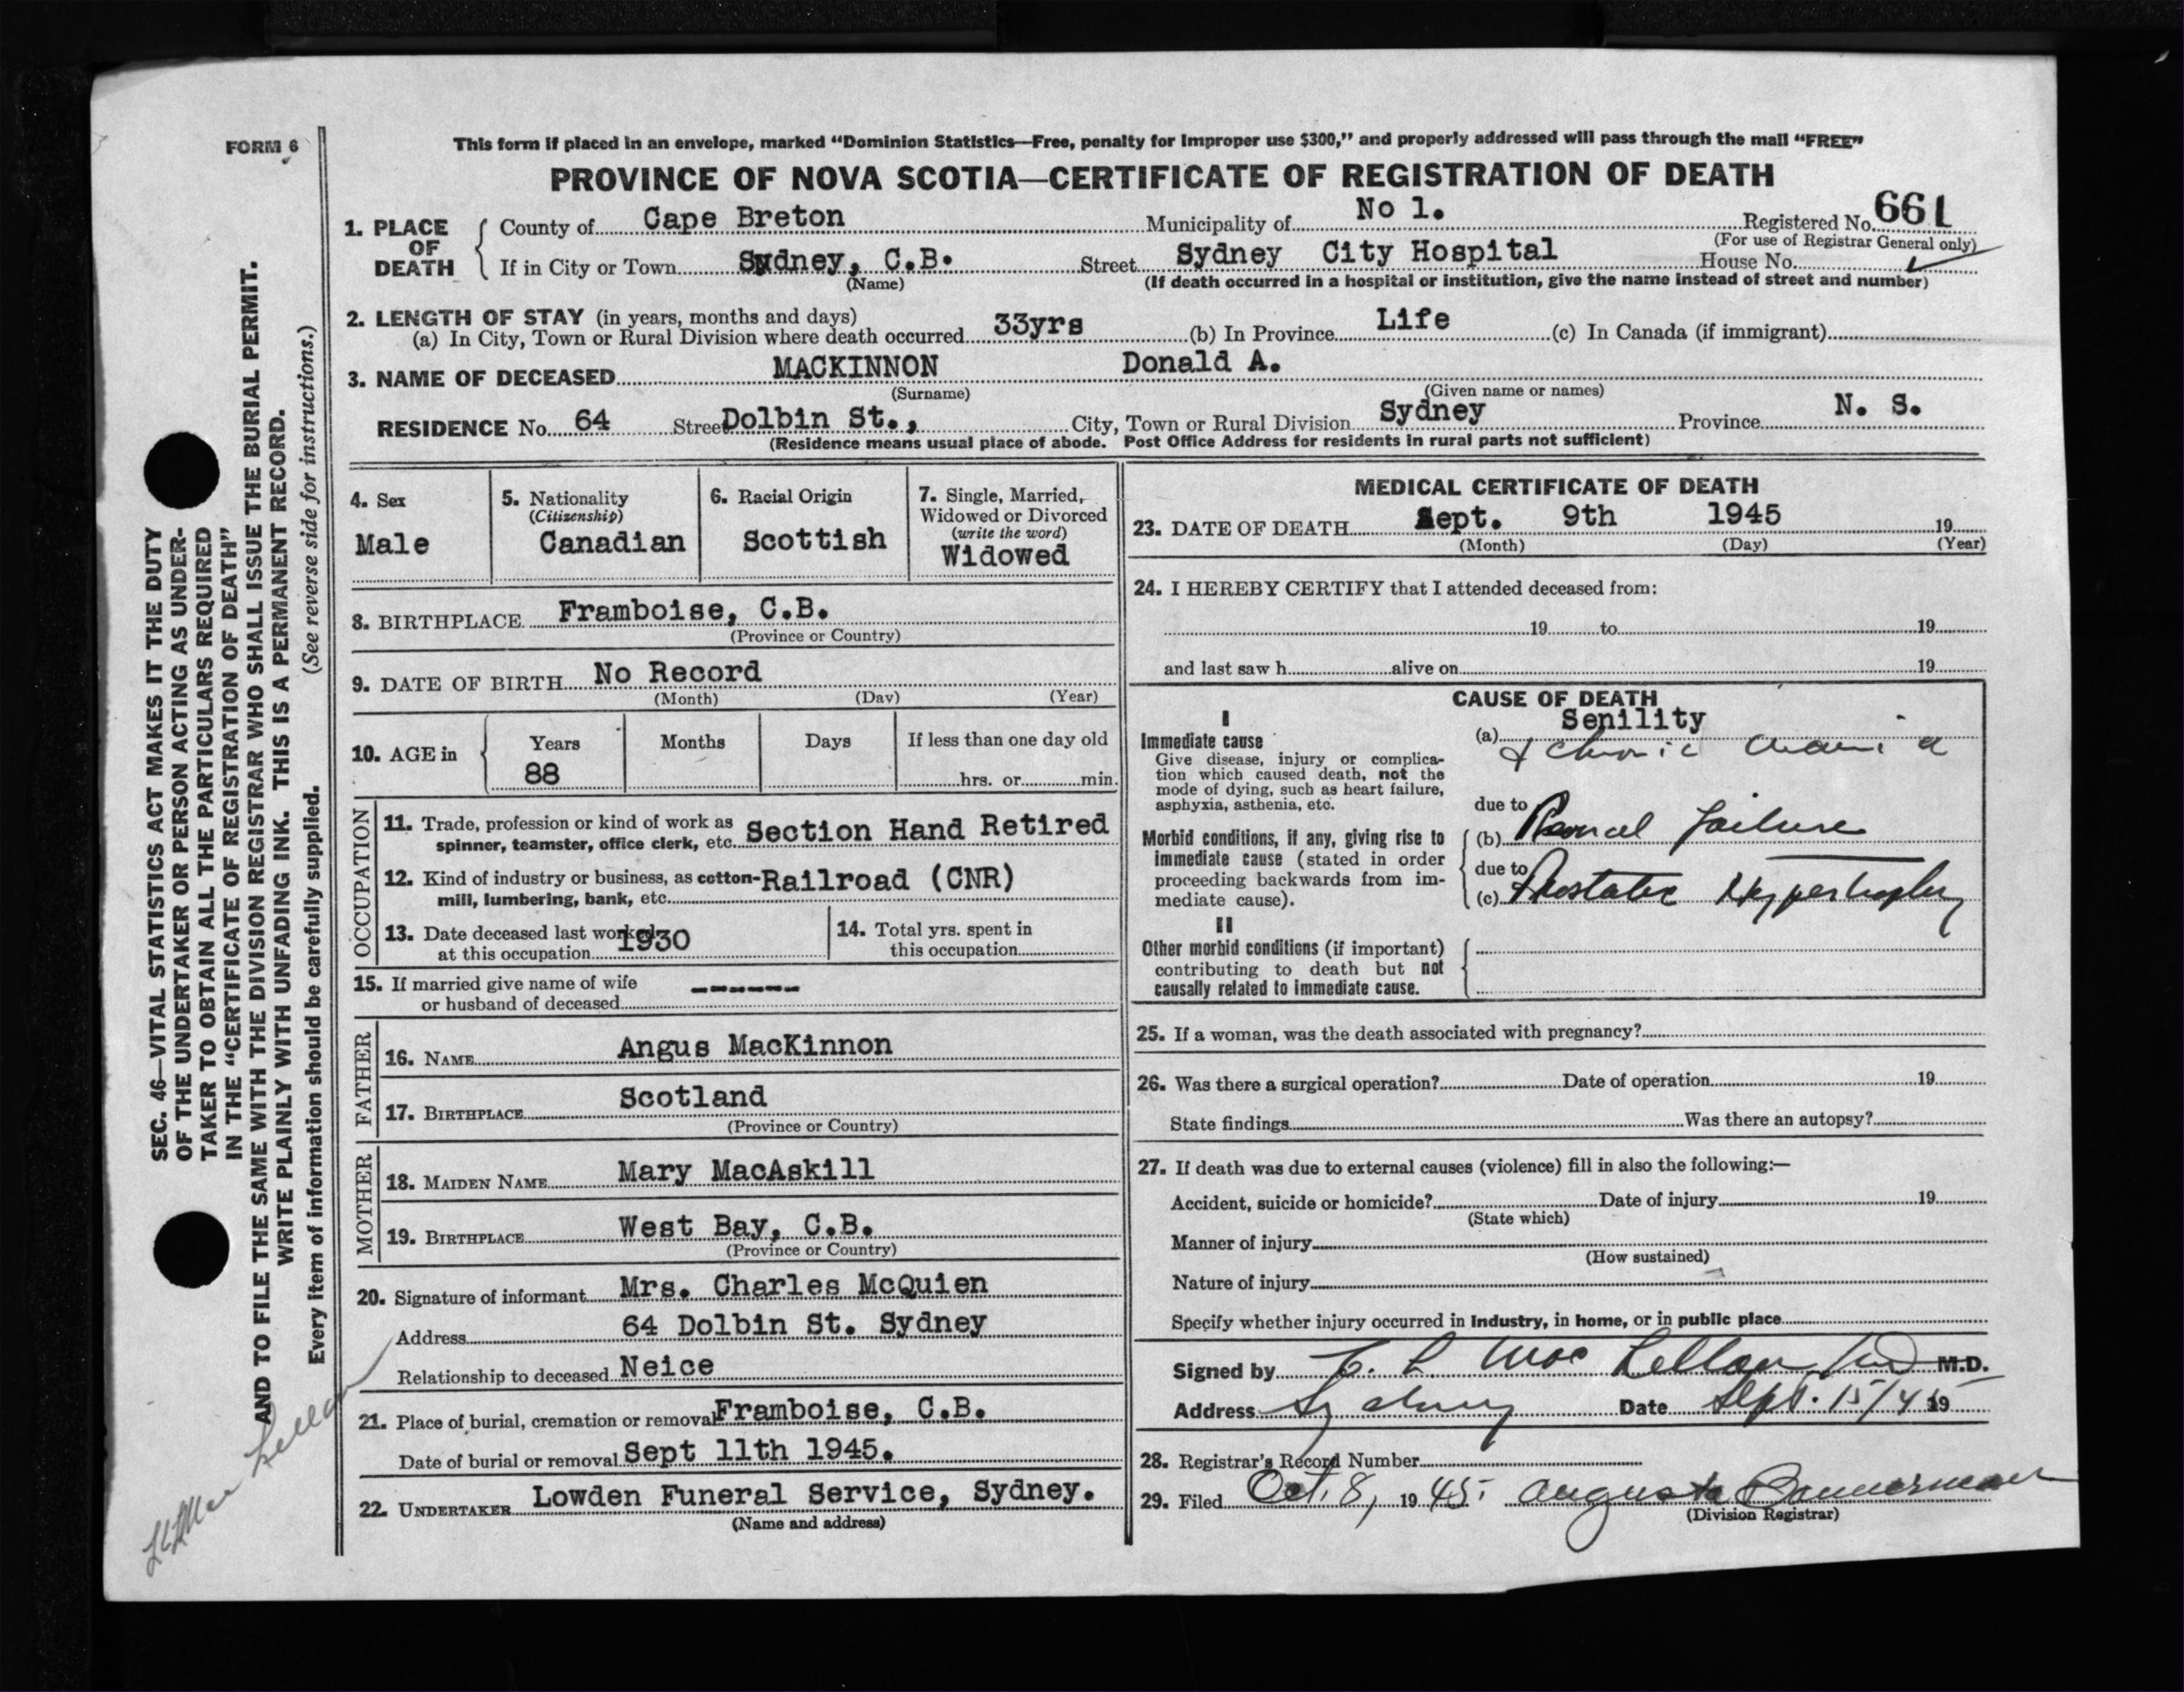 FORM 6
This form if placed in an envelope, marked "Dominion Statistics—Free, penalty for improper use $300," and properly addressed will pass through the mail "FREE"
PROVINCE OF NOVA SCOTIA—CERTIFICATE OF REGISTRATION OF DEATH
1. PLACE OF DEATH County of Cape Breton Municipality of No 1. Registered No. 661
(For use of Registrar General only)
If in City or Town Sydney, C.B. Street Sydney City Hospital House No.
(Name) (If death occurred in a hospital or institution, give the name instead of street and number)
2. LENGTH OF STAY (in years, months and days)
(a) In City, Town or Rural Division where death occurred 33yrs (b) In Province Life (c) In Canada (if immigrant)
3. NAME OF DECEASED MACKINNON Donald A.
(Surname) (Given name or names)
RESIDENCE No. 64 Street Dolbin St., City, Town or Rural Division Sydney Province N. S.
(Residence means usual place of abode. Post Office Address for residents in rural parts not sufficient)
4. Sex
Male
5. Nationality
(Citizenship)
Canadian
6. Racial Origin
Scottish
7. Single, Married,
Widowed or Divorced
(write the word)
Widowed
8. BIRTHPLACE Framboise, C.B.
(Province or Country)
9. DATE OF BIRTH No Record
(Month) (Day) (Year)
10. AGE in Years Months Days If less than one day old
88 hrs. or min.
OCCUPATION
11. Trade, profession or kind of work as
spinner, teamster, office clerk, etc. Section Hand Retired
12. Kind of industry or business, as cotton-
mill, lumbering, bank, etc. Railroad (CNR)
13. Date deceased last worked
at this occupation 1930
14. Total yrs. spent in
this occupation
15. If married give name of wife ------
or husband of deceased
FATHER
16. NAME Angus MacKinnon
17. BIRTHPLACE Scotland
(Province or Country)
MOTHER
18. MAIDEN NAME Mary MacAskill
19. BIRTHPLACE West Bay, C.B.
(Province or Country)
20. Signature of informant Mrs. Charles McQuien
Address 64 Dolbin St. Sydney
Relationship to deceased Neice
21. Place of burial, cremation or removal Framboise, C.B.
Date of burial or removal Sept 11th 1945.
22. UNDERTAKER Lowden Funeral Service, Sydney.
(Name and address)
MEDICAL CERTIFICATE OF DEATH
23. DATE OF DEATH Sept. 9th 1945 19
(Month) (Day) (Year)
24. I HEREBY CERTIFY that I attended deceased from:
19 to 19
and last saw h alive on 19
CAUSE OF DEATH
I
Immediate cause
Give disease, injury or complica-
tion which caused death, not the
mode of dying, such as heart failure,
asphyxia, asthenia, etc.
(a) Senility
& chronic
due to
Morbid conditions, if any, giving rise to
immediate cause (stated in order
proceeding backwards from im-
mediate cause).
(b) Renal failure
due to
(c) Prostatic Hypertrophy
II
Other morbid conditions (if important)
contributing to death but not
causally related to immediate cause.
25. If a woman, was the death associated with pregnancy?
26. Was there a surgical operation? Date of operation 19
State findings Was there an autopsy?
27. If death was due to external causes (violence) fill in also the following:—
Accident, suicide or homicide? Date of injury 19
(State which)
Manner of injury
(How sustained)
Nature of injury
Specify whether injury occurred in industry, in home, or in public place
Signed by L. Mac Lellan M.D.
Address Sydney Date Sept. 15/45 19
28. Registrar's Record Number
29. Filed Oct. 8, 1945. Augusta Bannerman
(Division Registrar)
SEC. 46—VITAL STATISTICS ACT MAKES IT THE DUTY
OF THE UNDERTAKER OR PERSON ACTING AS UNDER-
TAKER TO OBTAIN ALL THE PARTICULARS REQUIRED
IN THE "CERTIFICATE OF REGISTRATION OF DEATH"
AND TO FILE THE SAME WITH THE DIVISION REGISTRAR WHO SHALL ISSUE THE BURIAL PERMIT.
WRITE PLAINLY WITH UNFADING INK. THIS IS A PERMANENT RECORD.
Every item of information should be carefully supplied. (See reverse side for instructions.)
Mac Lellan